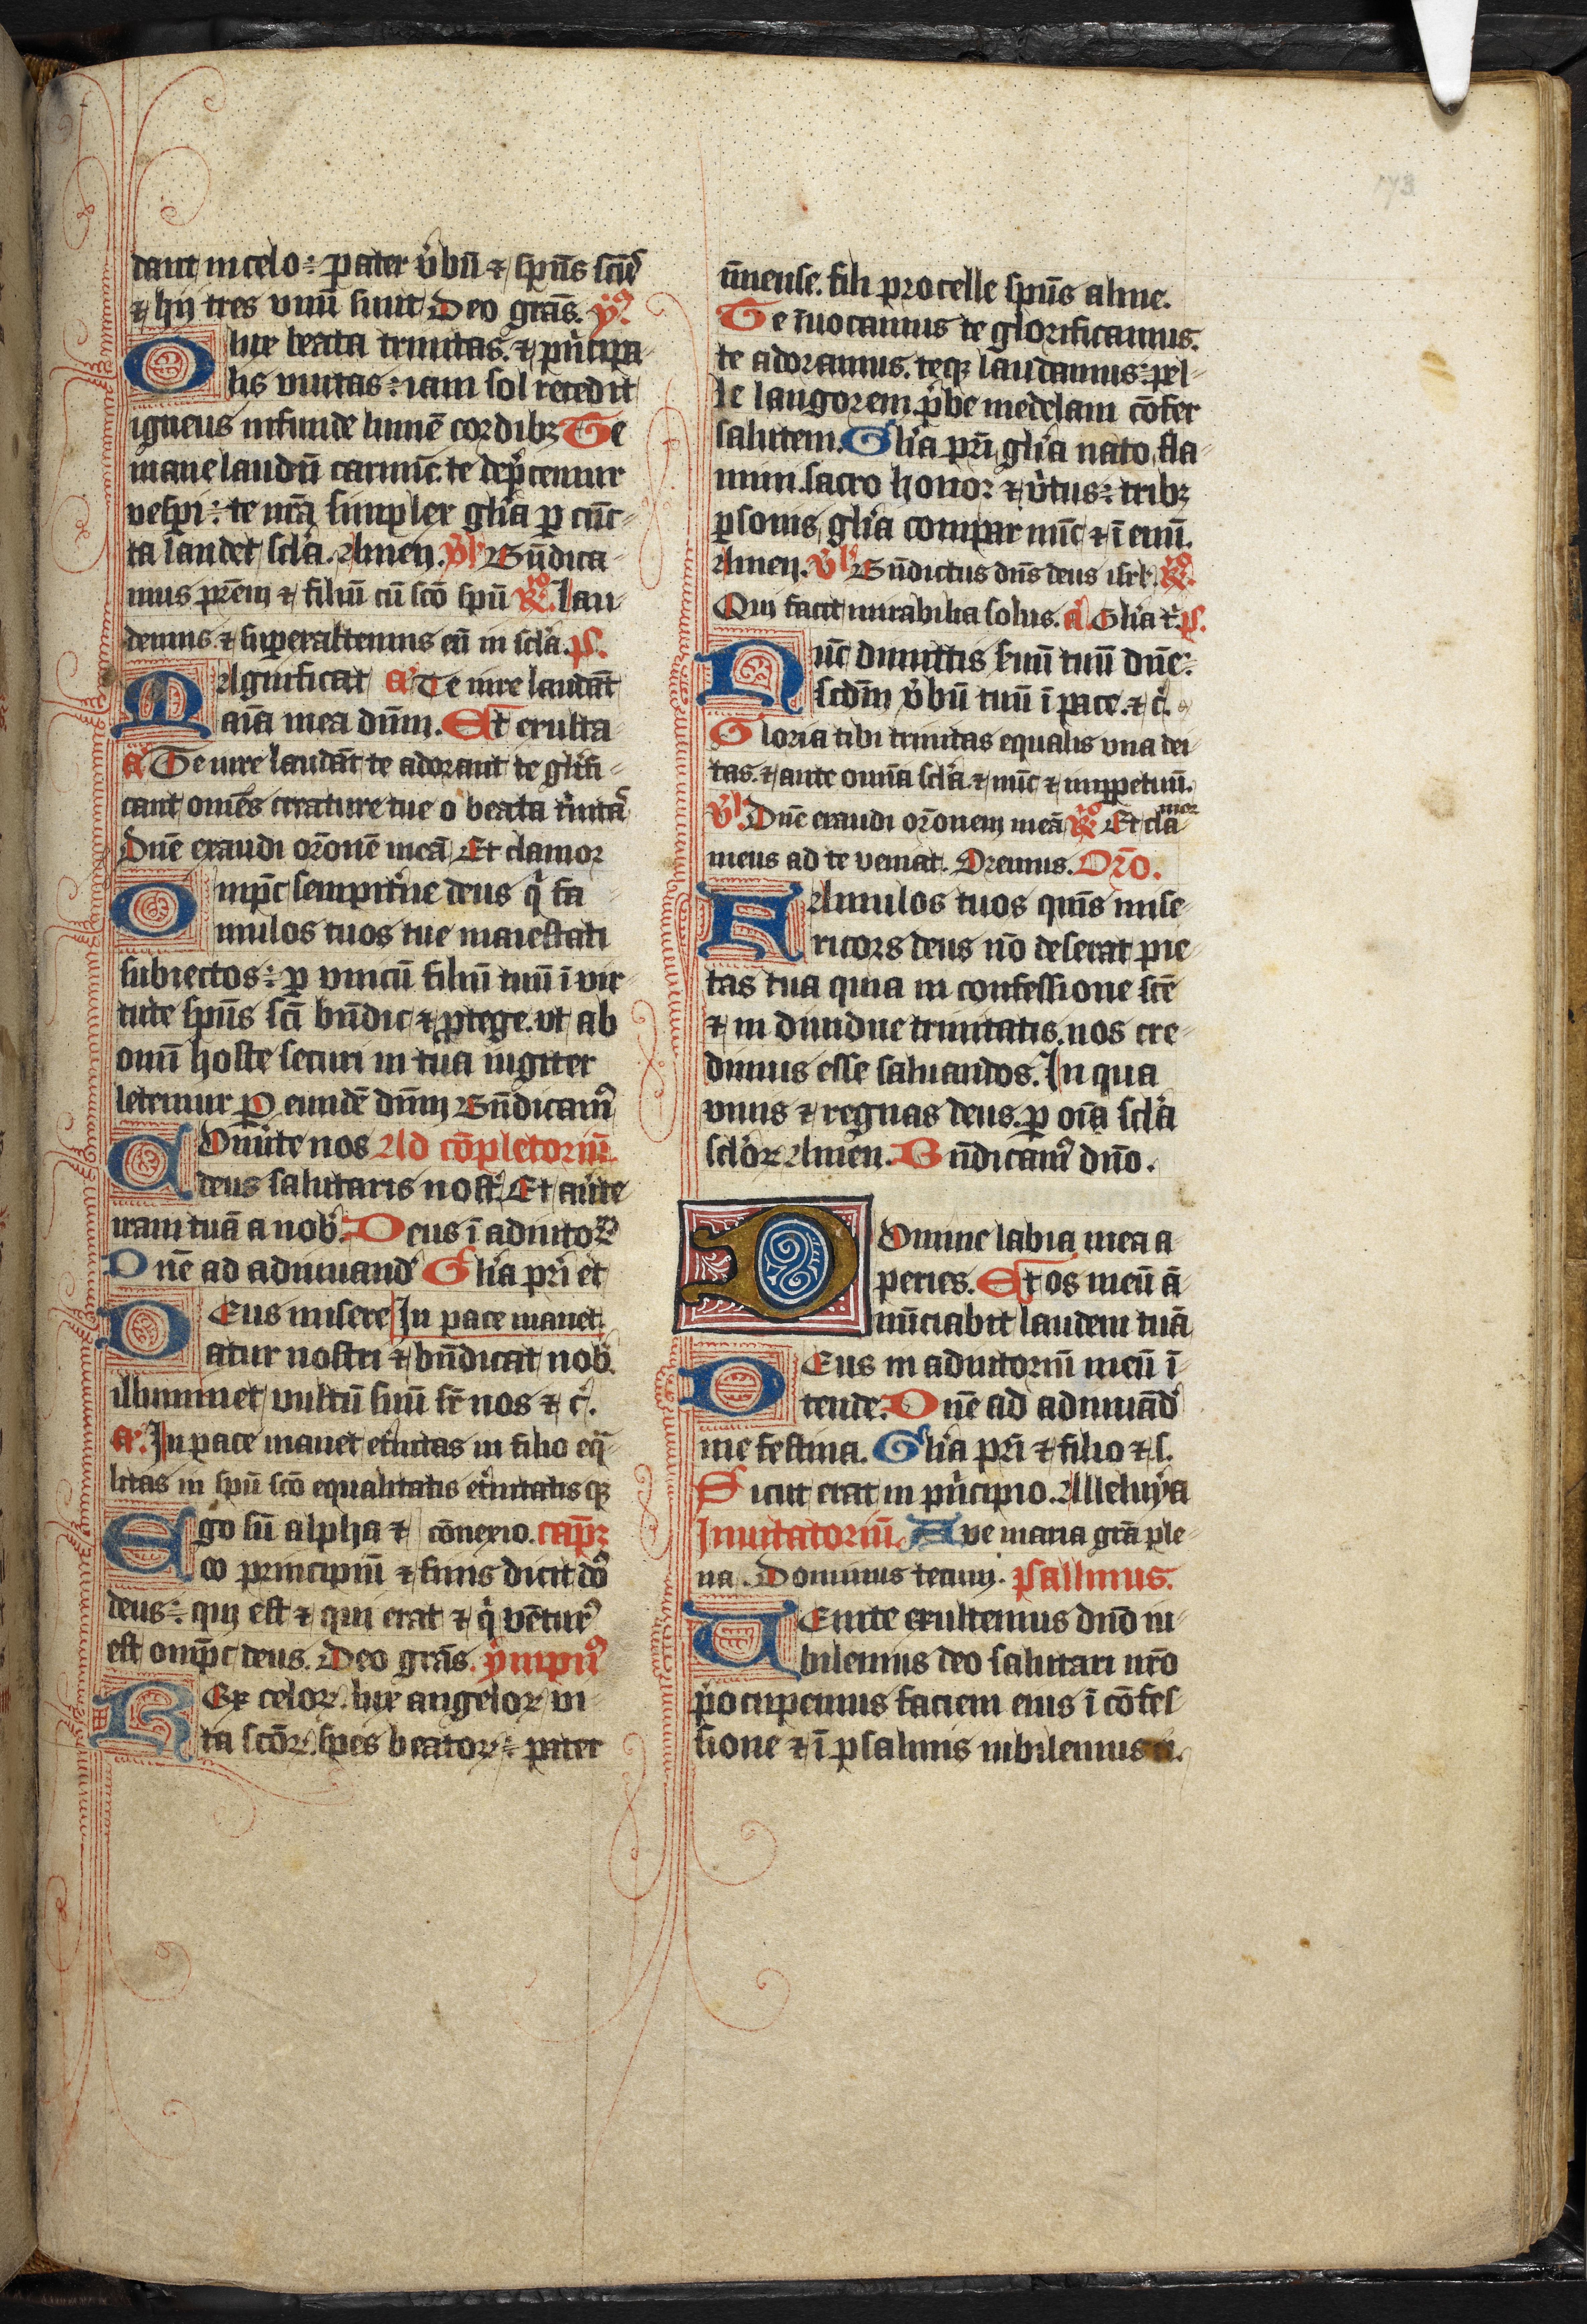 dant in celo: pater v̓bū ⁊ spūs scūs
⁊ hij tres vnū sunt Deo grās. ẏ9
O lux beata trinitas. ⁊ p̓ncipa
lis vnitas: iam sol recedit
igneus infunde lumē cordibꝫ Te
mane laudū carmīe. te dep̓cemur
vesp̓i: te nr̄a simplex glīa ꝑ cūc-
ta laudet scl̓a. Amen. v̓s Bn̄dica
mus pr̄em ⁊ filiū cū scō spū R̸o. Lau
demus ⁊ superaltemus eū in scl̓a. ps.
MAgnificat a Te iure laudāt
aīa mea dūm. Et exulta
a Te iure laudāt te adorant te gl̓ifi-
cant omēs creature tue o beata t̓nitas
Dn̄e exaudi orōnē meā Et clamor
Omp̄c sempit̓ne deus q̓ fa
mulos tuos tue maiestati
subiectos: ꝑ vnicū filiū tuū ī vir
tute spūs scī bn̄dic ⁊ ꝓtege. vt ab
omī hoste securi in tua iugiter
letemur P eundē dūm Bn̄dicam9
COnūte nos Ad cōpletoriū.
deus salutaris nost̓. Et au̓te
iram tuā a nob̓. Deus ī adiuto℞
Dnē ad adiuuand̓ Gl̓ia pr̄i et
DEus misere In pace manet.
atur nostri ⁊ bn̄dicat nob̓.
illuminet vultū suū sr̄ nos ⁊ c̓.
a. In pace manet et̓nitas in filio eq̄-
litas in spū scō equalitatis et̓nitatis qꝫ
Ego sū alpha ⁊ cōnexio. capꝫ
ω principiū ⁊ finis dicit dō
deus: qui est ⁊ qui erat ⁊ q̓ vētur9
est omp̄c deus. Deo grās. ympn9
REx celoꝝ. lux angeloꝝ vi-
ta scōꝝ. spes beatoꝝ: pater
īmense. fili procelle spūs alme.
Te īuocamus te glorificamus.
te adoramus. teqꝫ laudamus: pel-
le langorem. p̓be medelam cōfer
salutem. Gl̓ia pr̄i gl̓ia nato fla-
mini sacro honor ⁊ v̓tus: tribꝫ
ꝑsonis gl̓ia compar nūc ⁊ ī euū.
Amen. v̓s Bn̄dictus dn̄s deus isrl̓. R̸o.
Qui facit mirabilia solus. a Gl̓ia t̓. ps.
Nūc dimittis s̓uū tuū dn̄e:
scd̄m v̓bū tuū ī pace. ⁊ c̓.
Gloria tibi trinitas equalis vna dei
tas. ⁊ ante omīa scl̓a ⁊ nūc ⁊ imꝑpetuū.
v̓s Dn̄e exaudi orōnem meā R̸o Et cla
mor
meus ad te veniat. Oremus. Orō.
FAmulos tuos quīs mise
ricors deus nō deserat pie
tas tua quia in confessione scē
⁊ in diuidue trinitatis. nos cre-
dimus esse saluandos. In qua
viuis ⁊ regnas deus. ꝑ oīa scl̓a
scl̓oꝝ Amen. Bn̄dicam9 dn̄o.
DOmine labia mea a
peries. Et os meū ā
nūciabit laudem tuā
DEus in adiutoriū meū ī
tende. Dnē ad adiuuād̓
me festina. Gl̓ia pr̄i ⁊ filio ⁊ s.
Sicut erat in p̓ncipio. Alleluya
Inuitatoriū Aue maria grā ple-
na. Dominus tecum. psalmus.
UEnite exultemus dnō iu-
bilemus deo salutari nr̄o
p̓ocupemus faciem eius ī cōfes
sione ⁊ ī psalmis iubilemus ei.